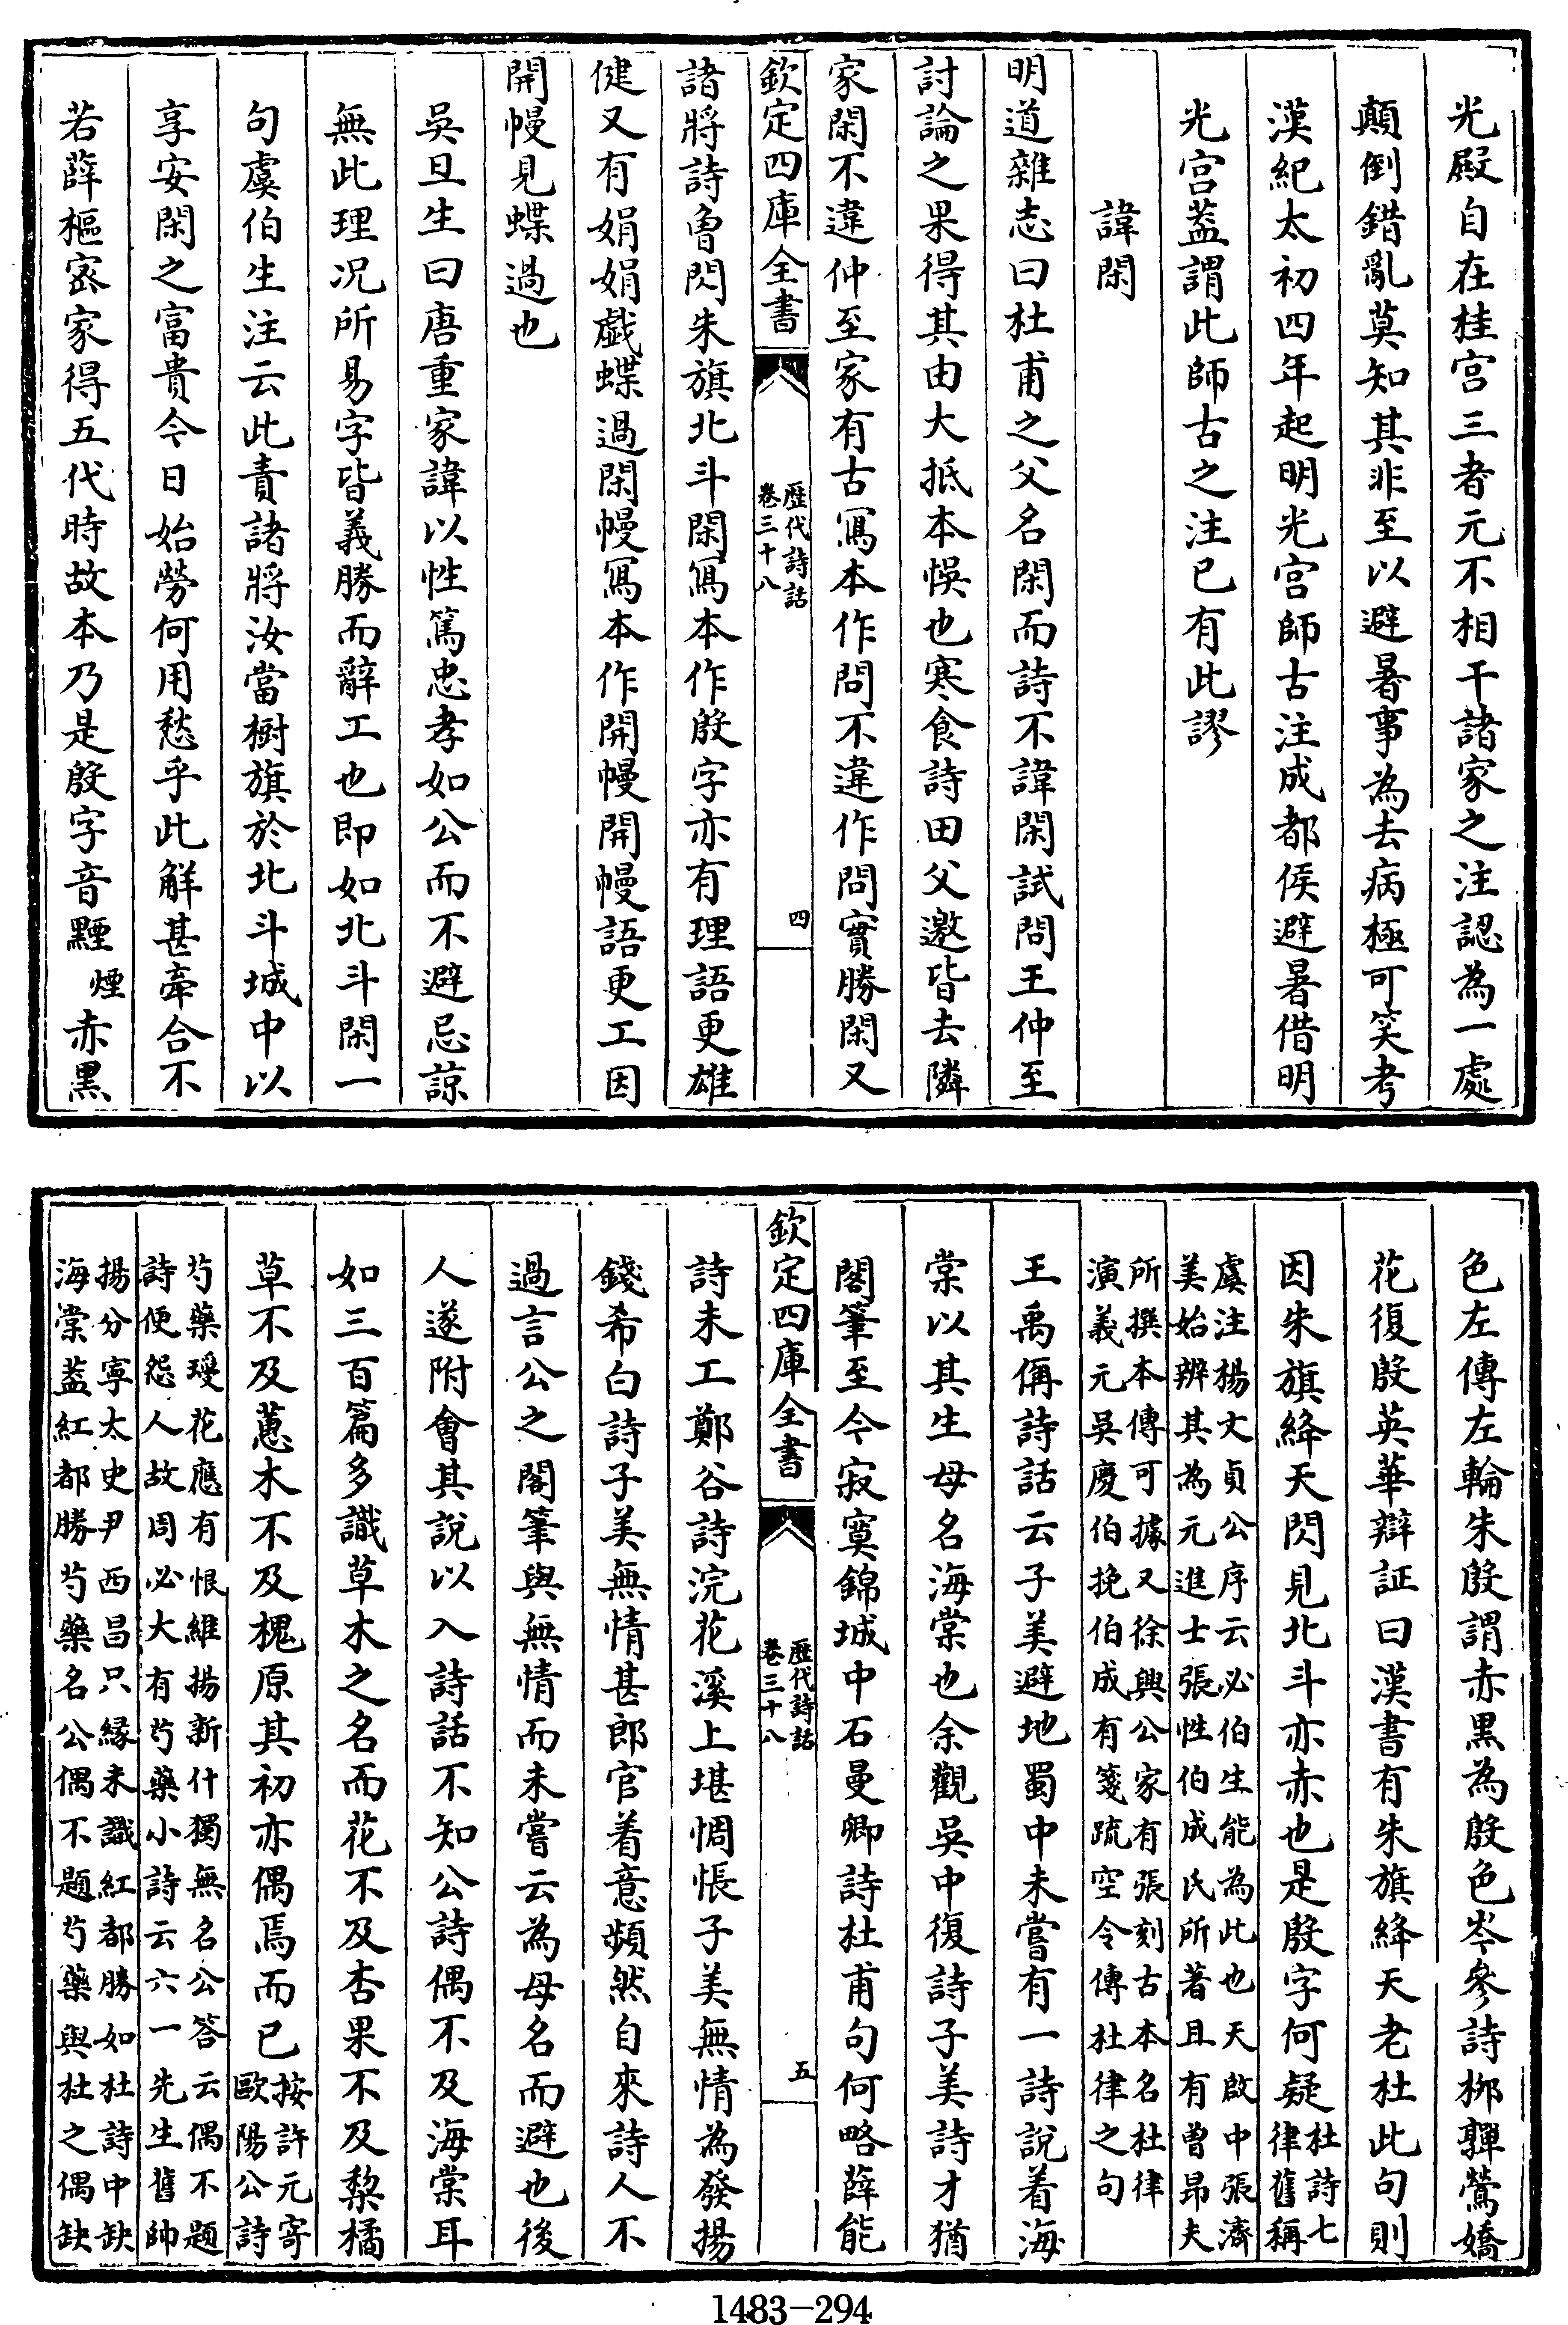 光殿自在桂宫三者元不相干諸家之注認為一處
顛倒錯亂莫知其非至以避暑事為去病極可笑考
漢紀太初四年起明光宫師古注成都侯避暑借明
光宫蓋謂此師古之注已有此謬
諱閑
明道雜志曰杜甫之父名閑而詩不諱閑試問王仲至
討論之果得其由大抵本悮也寒食詩田父邀皆去隣
家閑不違仲至家有古寫本作問不違作問實勝閑又
欽定四庫全書
歴代詩話
卷三十八
四
諸將詩曽閃朱旗北斗閑寫本作殷字亦有理語更雄
健又有娟娟戯蝶過閑幔寫本作開幔開幔語更工因
開幔見蝶過也
吳旦生曰唐重家諱以性篤忠孝如公而不避忌諒
無此理况所易字皆義勝而辭工也即如北斗閑一
句虞伯生注云此責諸將汝當樹旗於北斗城中以
享安閑之富貴今日始勞何用愁乎此解甚牽合不
若薛樞宻家得五代時故本乃是殷字音黫煙赤黒
色左傳左輪朱殷謂赤黒為殷色岑參詩栁嚲鶯嬌
花復殷英華辯証曰漢書有朱旗絳天老杜此句則
因朱旗絳天閃見北斗亦赤也是殷字何疑杜詩七
律舊稱
虞注楊文貞公序云必伯生能為此也天啟中張濟
美始辨其為元進士張性伯成氏所著且有曽昂夫
所撰本傳可據又徐興公家有張刻古本名杜律
演義元吳慶伯挽伯成有箋疏空令傳杜律之句
王禹偁詩話云子美避地蜀中未嘗有一詩說着海
棠以其生母名海棠也余觀吳中復詩子美詩才猶
閣筆至今寂寞錦城中石曼卿詩杜甫句何略薛能
欽定四庫全書
歴代詩話
卷三十八
五
詩未工鄭谷詩浣花溪上堪惆悵子美無情為發揚
錢希白詩子美無情甚郎官着意頻然自來詩人不
過言公之閣筆與無情而未嘗云為母名而避也後
人遂附㑹其說以入詩話不知公詩偶不及海棠耳
如三百篇多識草木之名而花不及杏果不及棃橘
草不及蕙木不及槐原其初亦偶焉而已按許元寄
歐陽公詩
芍藥瓊花應有恨維揚新什獨無名公答云偶不題
詩便怨人故周必大有芍藥小詩云六一先生舊帥
揚分寧太史尹西昌只緣未識紅都勝如杜詩中缺
海棠蓋紅都勝芍藥名公偶不題芍藥與杜之偶缺
1483-294